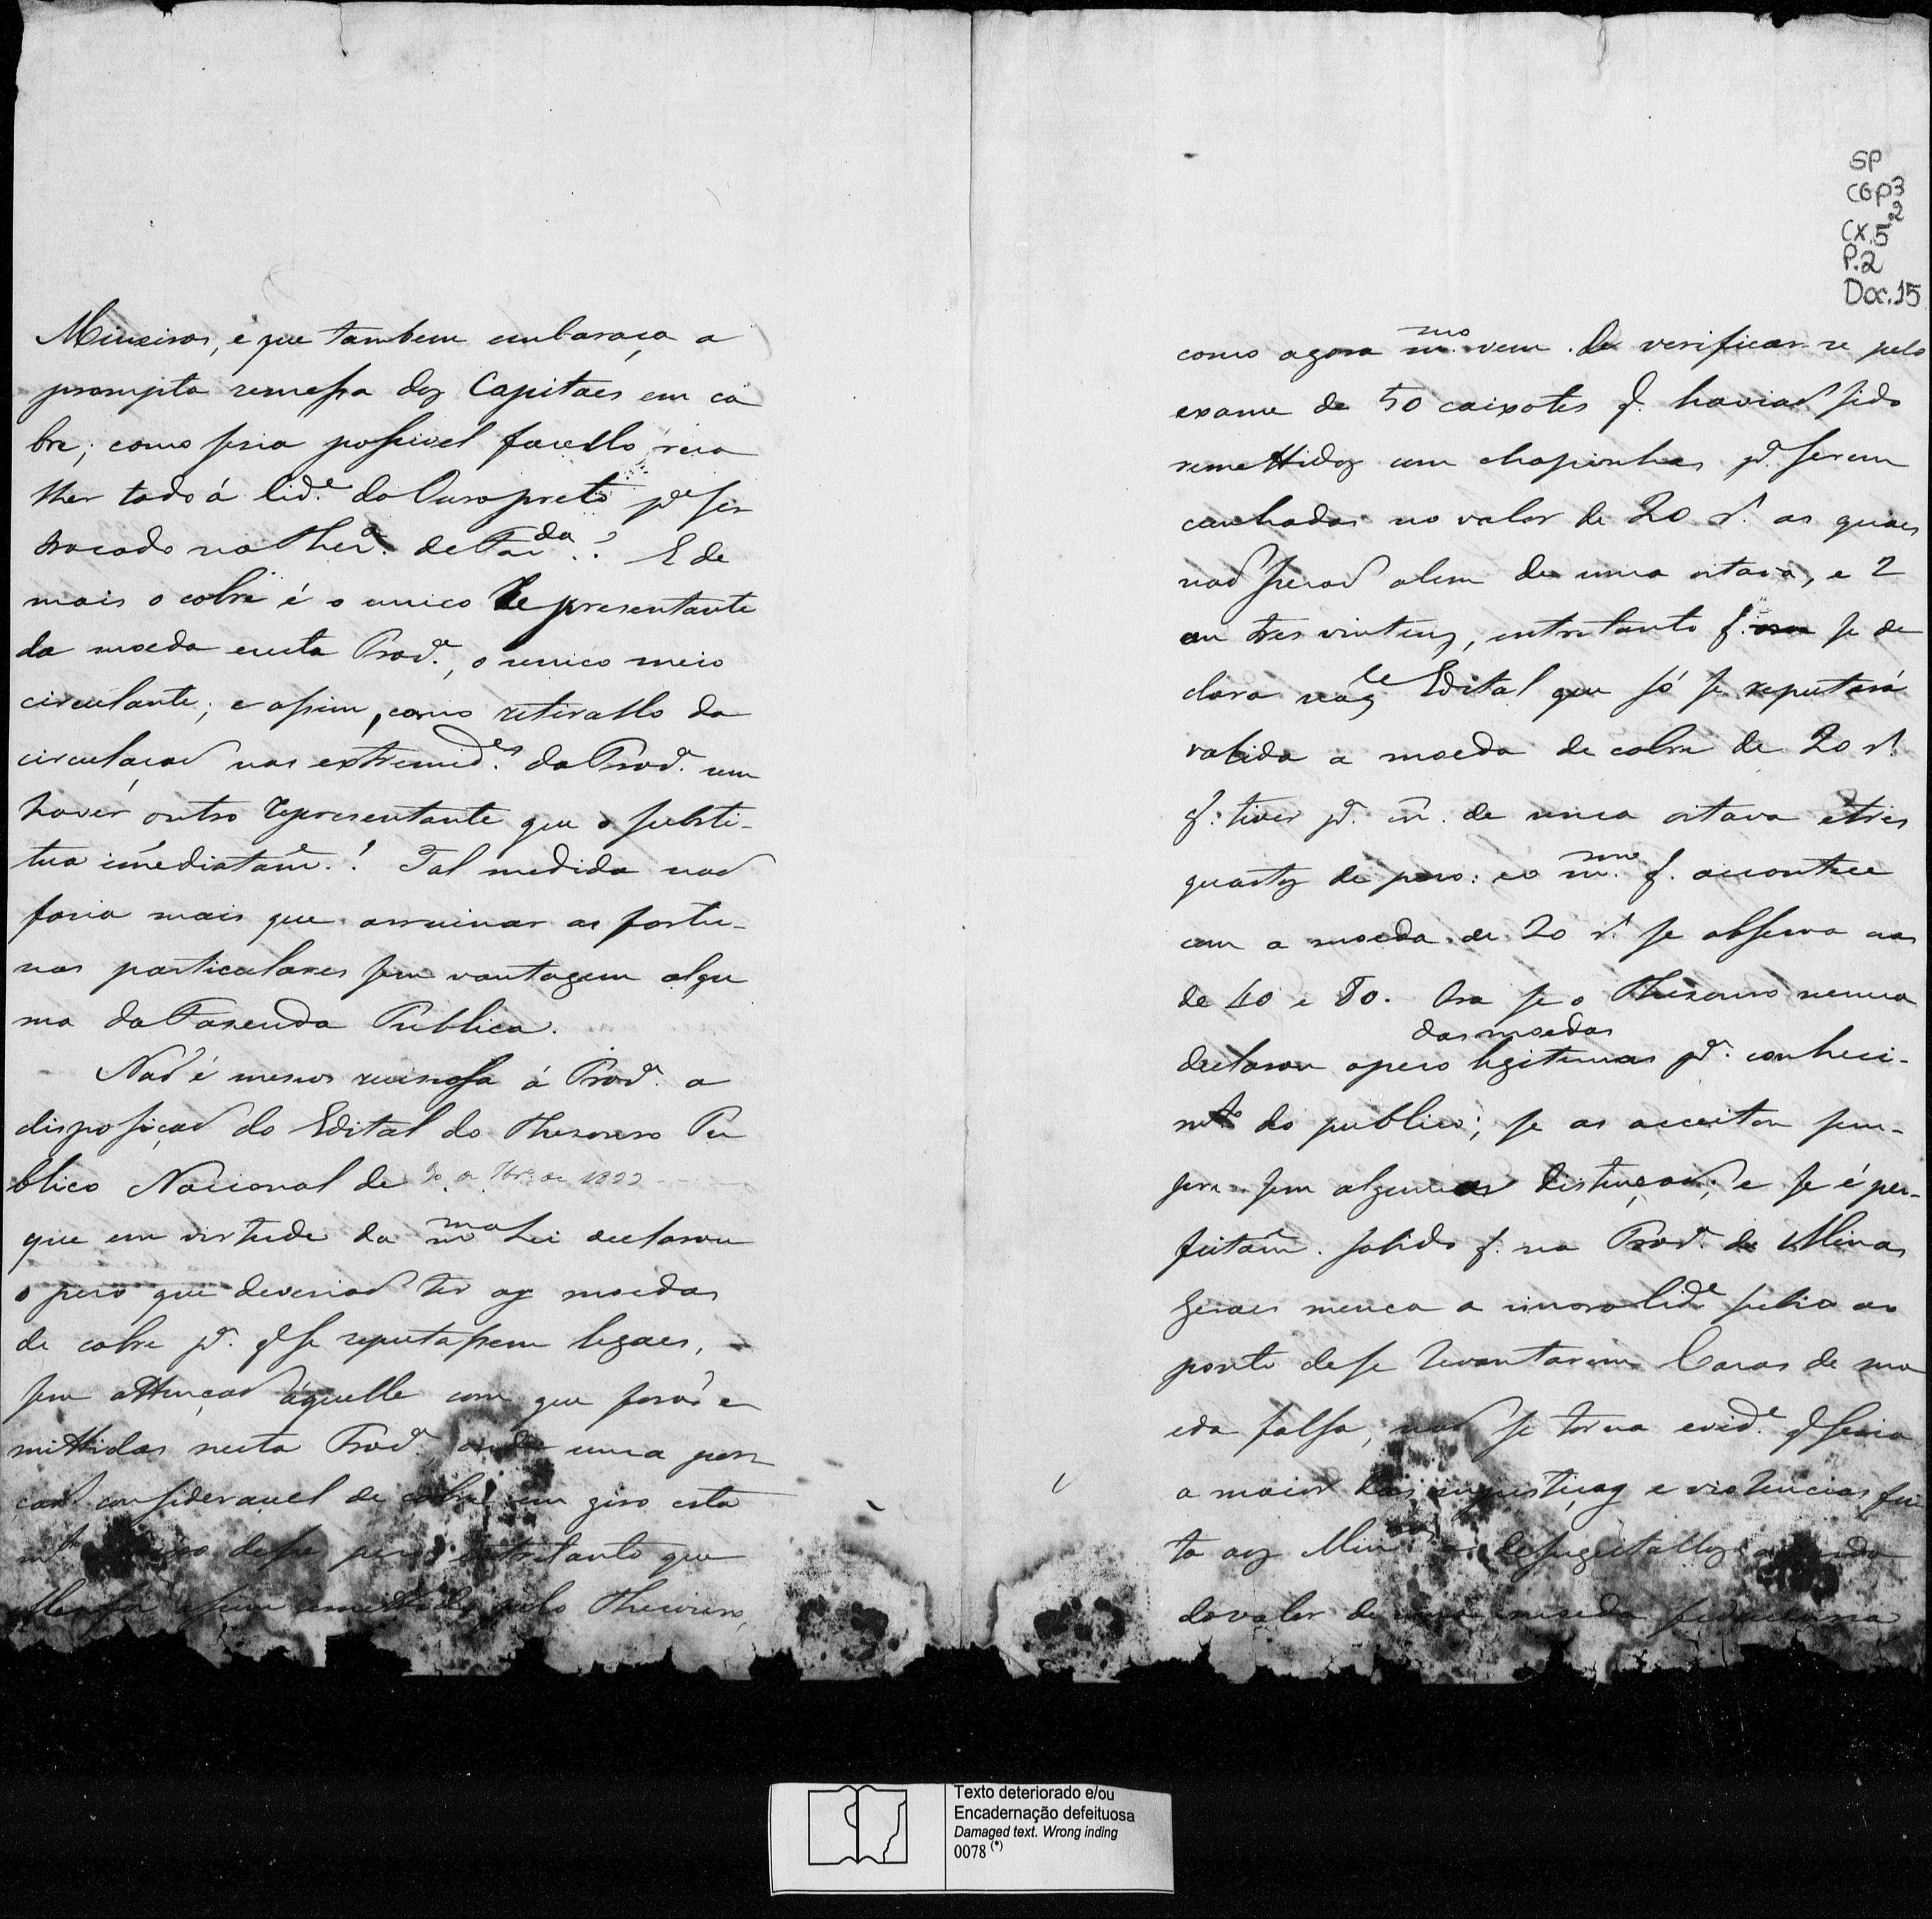 Mineiros, e que tambem embaraça a
prompta remessa dos Capitaes em co
bre; como seria possivel fazello reco
lher todo á Cid.e do Ouro preto p.a ser
trocado na Thez.a de Faz.da? E de
mais o cobre é o unico Representante
da moeda nesta Prov.a, o unico meio
circulante; e assim, como retirallo da
circulaçaõ nas extremid.es da Prov.a sem
haver outro representante que o substi-
tua imediatam.e! Tal medida naõ
faria mais que arruinar as fortu-
nas particulares sem vantagem algu
ma da Fazenda Publica.
Naõ é menos ruinosa á Prov.a a
disposiçaõ do Edital do Thesouro Pu
blico Nacional de
que em virtude da m.ma Lei declarou
o pezo que deveriaõ ter as moedas
de cobre p.a q se reputassem legaes,
sem attençaõ áquelle com que foraõ e
mittidas nesta Prov.a, onde uma por
çaõ consideravel de cobre em giro está
m.to desse pezo entretanto que
elle foi assim emittido pelo Thesouro,
SP
CGP3
CX.5 2
P.2
Doc.15
como agora m.mo vem de verificar-se pelo
exame de 50 caixotes q. haviaõ sido
remettidos com chapinhas p.a serem
cunhadas no valor de 20 r.s as quaes
naõ pezaõ alem de uma oitava, e 2
ou tres vintens, entretanto q. se de
clara Edital que só se reputará
valida a moeda de cobre de 20 r.s
q. tiver p.a m. de uma oitava e tres
quartos de pezo: e o m.mo q. acontece
com a moeda de 20 r.s se observa nas
de 40 e 80. Ora se o Thesouro nunca
declarou o pezo das moedas legitimas p.a conheci-
m.to do publico; se as aceitou sem-
pre sem alguma distinçaõ; e se é per-
feitam.e sabido q. na Prov.a de Minas
Geraes nunca a immoralid.e subio ao
ponto de se levantarem Casas de mo
eda falsa, naõ se torna evid.e q seria
a maior das injustiças e violencias fei
ta aos Min.os
do valor de uma moeda
Texto deteriorado e/ou
Encadernação defeituosa
Damaged text. Wrong inding
0078 (*)